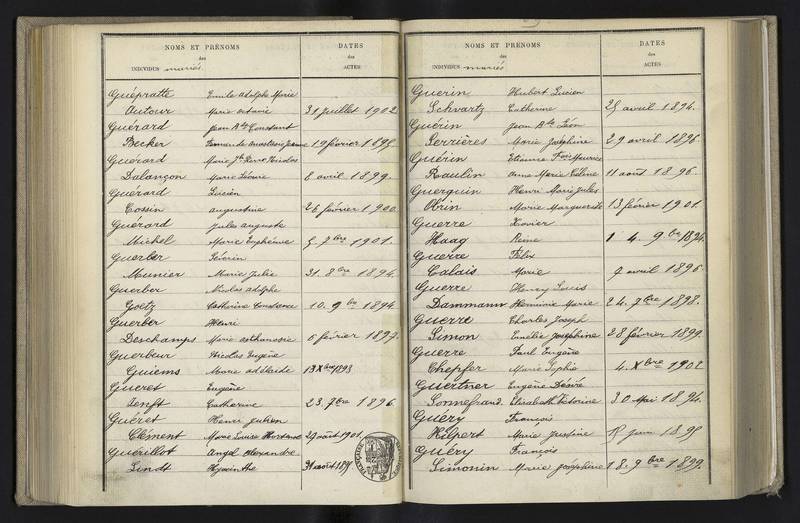 NOMS ET PRÉNOMS DATES
des des
INDIVIDUS mariés. ACTES
Guépratte Emile Adolphe Marie
Autour Marie Octavie 31 juillet 1902.
Guérard Jean Bte Constant
Becker 19 février 1895.
Guérard Marie Jh Pierre Nicolas
Dalançon Marie 8 avril 1899.
Guérard Lucien
Cossin Augustine 26 février 1900.
Guérard Jules Auguste
Michel Marie Euphémie 5. 7bre 1901.
Guerber Séverin
Munier Marie Julie 31. 8bre 1894.
Guerber Nicolas Adolphe
Goetz Catherine Constance 10. 9bre 1894
Guerber Henri
Deschamps Marie 6 février 1897.
Guerbeur Nicolas Eugène
Guiems Marie Adélaïde 13 Xbre 1893
Gueret Eugène
Senft Catherine 23. 7bre 1896.
Guéret Henri Julien
Clément Marie Louise Hortense 29 août 1901.
Guérillot Angel Alexandre
Lindt Hyacinthe 31 août
NOMS ET PRÉNOMS DATES
des des
INDIVIDUS mariés ACTES
Guerin Hubert Lucien
Schvartz Catherine 25 avril 1894.
Guérin Jean Bte Léon
Serrières Marie Joséphine 29 avril 1896.
Guérin Etienne Fois Maurice
Raulin Anne Marie Céline 11 août 1896.
Guerquin Henri Marie Jules
Obrin Marie Marguerite 13 février 1901.
Guerre Xavier
Haag Reine 14. 9bre 1894.
Guerre Félix
Calais Marie 9 avril 1896.
Guerre Henry Louis
Dammann Herminie Marie 24. 7bre 1898.
Guerre Charles Joseph
Simon Emélie Joséphine 28 février 1899.
Guerre Paul Eugène
Chepfer Marie Sophie 4. Xbre 1902
Guertner Eugène Désiré
Sonnefraud. Elisabeth Victorine 30 Mai 1894.
Guéry François
Hilpert Marie Justine juin 1895
Guéry François
Simonin Marie Joséphine 18. 9bre 1899.